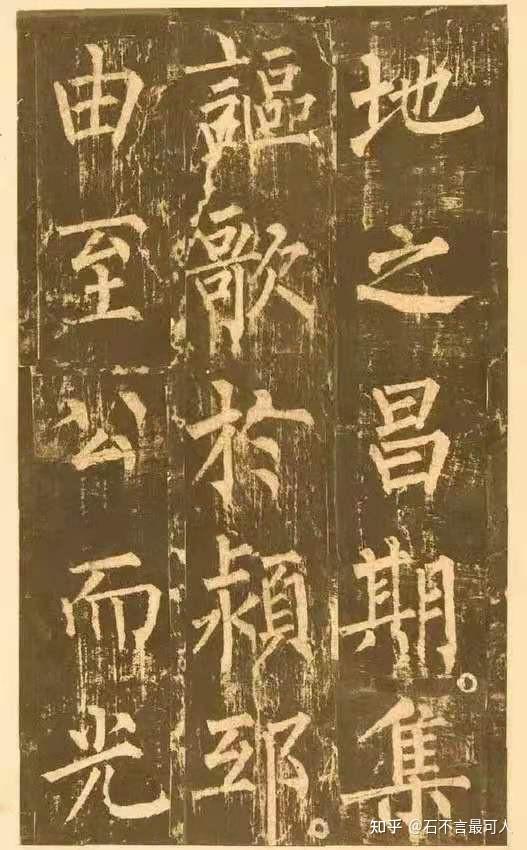 地之昌期集
謳歌於潁邸
由至公而光
知乎 @石不言最可人